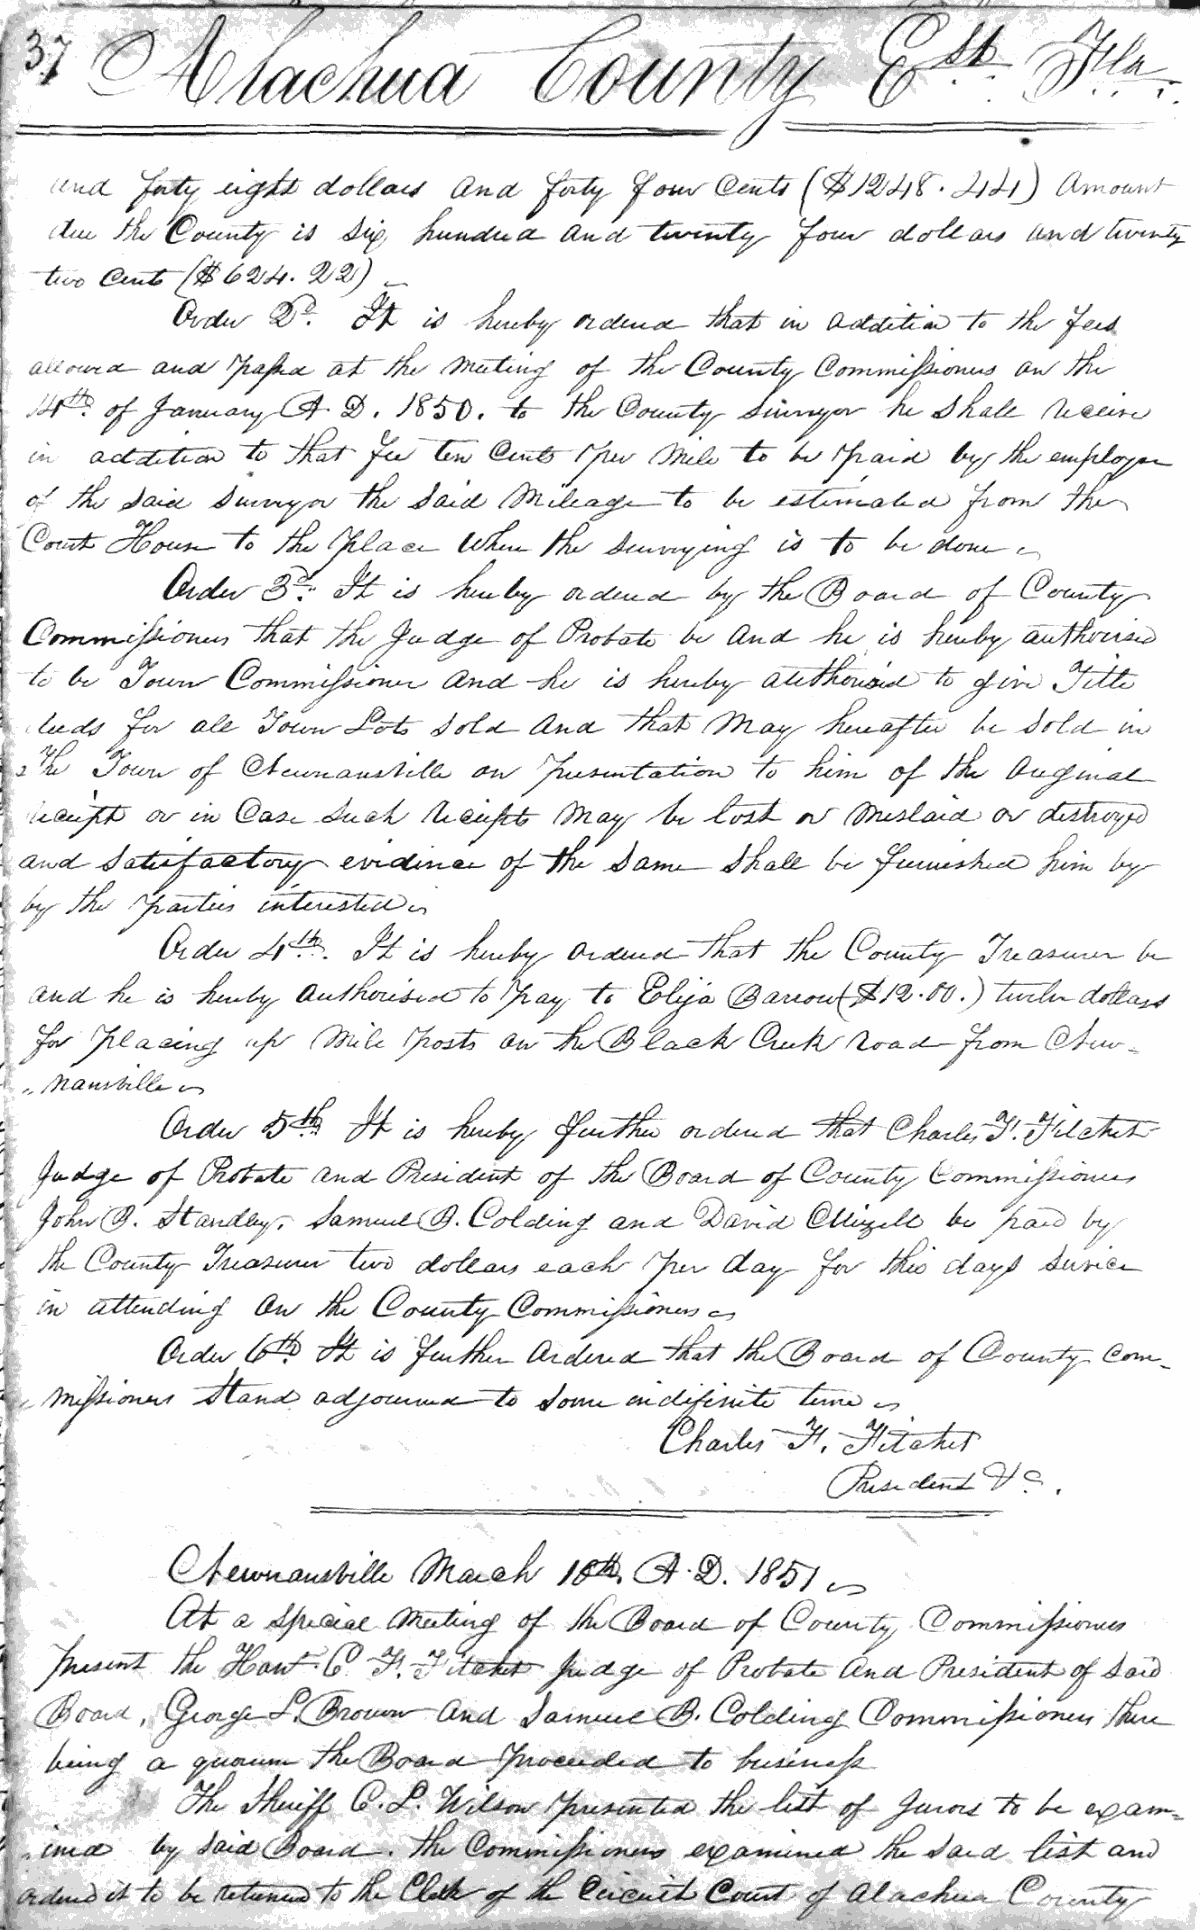 37 Alachua County Est. Fla.
and forty eight dollars and forty four Cents ($1248.44) Amount
due the County is six hundred and twenty four dollars and twenty
two Cents ($624.22)
Order 2d. It is hereby ordered that in addition to the fees
allowed and passed at the meeting of the County Commissioners on the
14th of January A.D. 1850. to the County Surveyor he shall receive
in addition to that fee ten Cents per Mile to be paid by the employer
of the said surveyor the said Mileage to be estimated from the
Court House to the place when the surveying is to be done
Order 3d. It is hereby ordered by the Board of County
Commissioners that the Judge of Probate be and he is hereby authorised
to be Town Commissioner and he is hereby authorised to give Title
deeds for all Town Lots sold and that May hereafter be sold in
The Town of Newnansville on presentation to him of the Original
receipt or in Case such receipts May be lost or mislaid or destroyed
and satisfactory evidence of the same shall be furnished him by
by the parties interested
Order 4th. It is hereby ordered that the County Treasurer be
and he is hereby authorised to pay to Elija Barrow ($12.00.) twelve dollars
for placing up Mile posts on the Black Creek road from New-
nansville
Order 5th It is hereby further ordered that Charles F. Fitchet
Judge of Probate and President of the Board of County Commissioners
John B. Standley, Samuel B. Colding and David Mizell be paid by
the County Treasurer two dollars each per day for this days service
in attending on the County Commissioners
Order 6th It is further Ordered that the Board of County Com-
missioners stand adjourned to some indifinite time
Charles F. Fitchet
President &c.
Newnansville March 10th, A.D. 1851
At a special Meeting of the Board of County Commissioners
present the Hont. C F. Fitchet Judge of Probate and President of said
Board, George L. Brown and Samuel B. Colding Commissioners there
being a quorum the Board proceeded to business
The Sheriff C. L. Wilson presented the list of Jurors to be exam-
ined by said Board. the Commissioners examined the said list and
ordered it to be returned to the Clerk of the Circuit Court of Alachua County